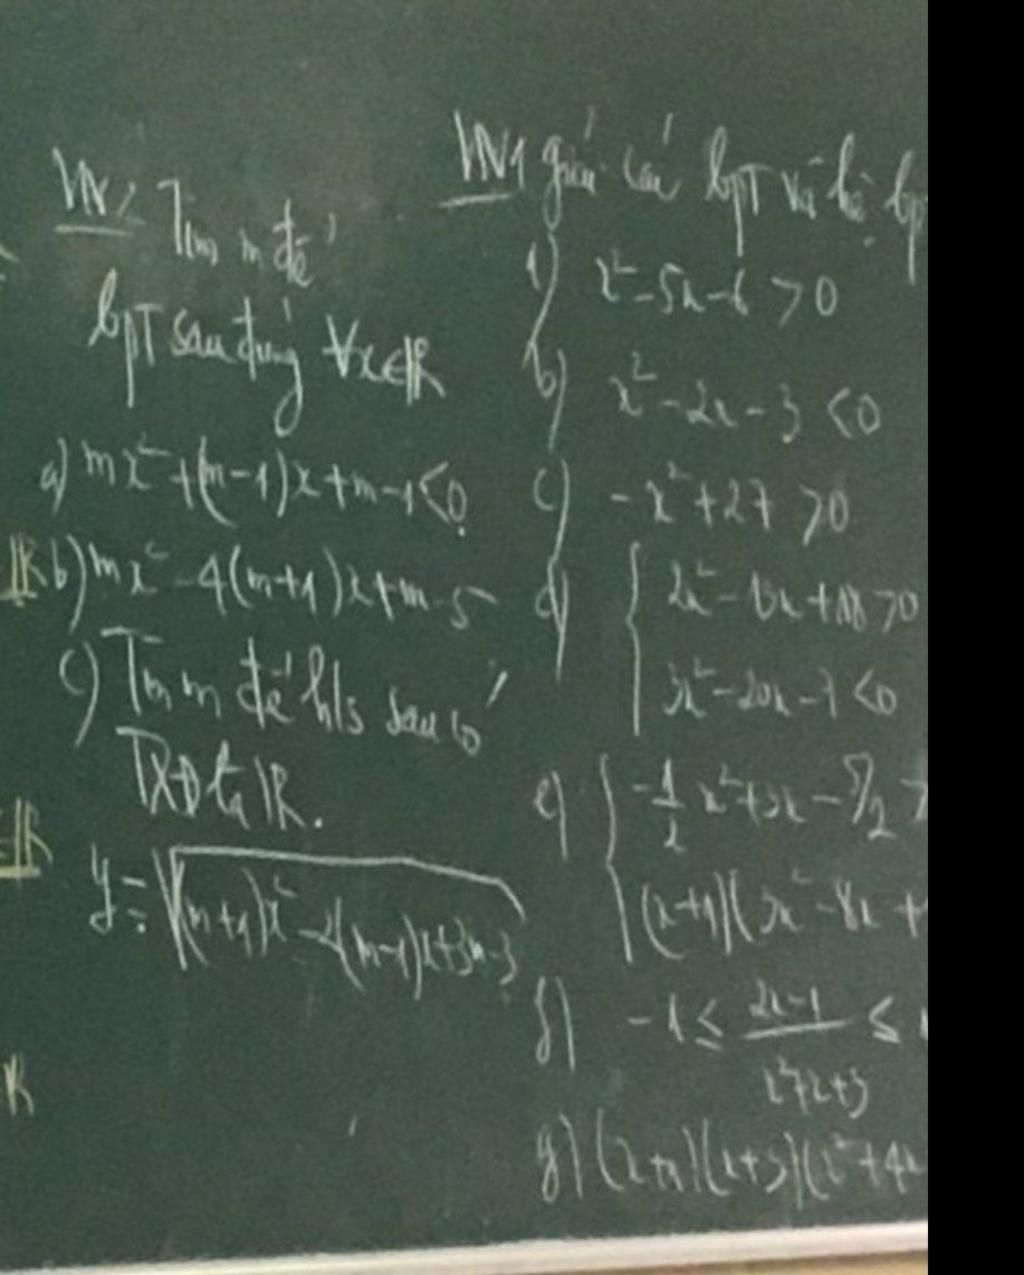 Tìm m để
bpT sau đúng ∀x∈R
a) mx²+(m-1)x+m-1<0
b) mx²-4(m+1)x+m-5
c) Tìm m để h/s sau có
TXĐ là R.
y=√(m+1)x²-2(m-1)x+3m-3
VN1 giải các bpT và hệ bp
x²-5x-6>0
b) x²-2x-3<0
c) -x²+27>0
d) 2x²-6x+18>0
3x²-20x-7<0
e) -1/2x²+3x-5/2>
(x+1)(3x²-8x+
f) -1≤(2x-1)/(x²+x+3)≤
g) (x+1)(x+3)(x²+4x
R
∈R
R